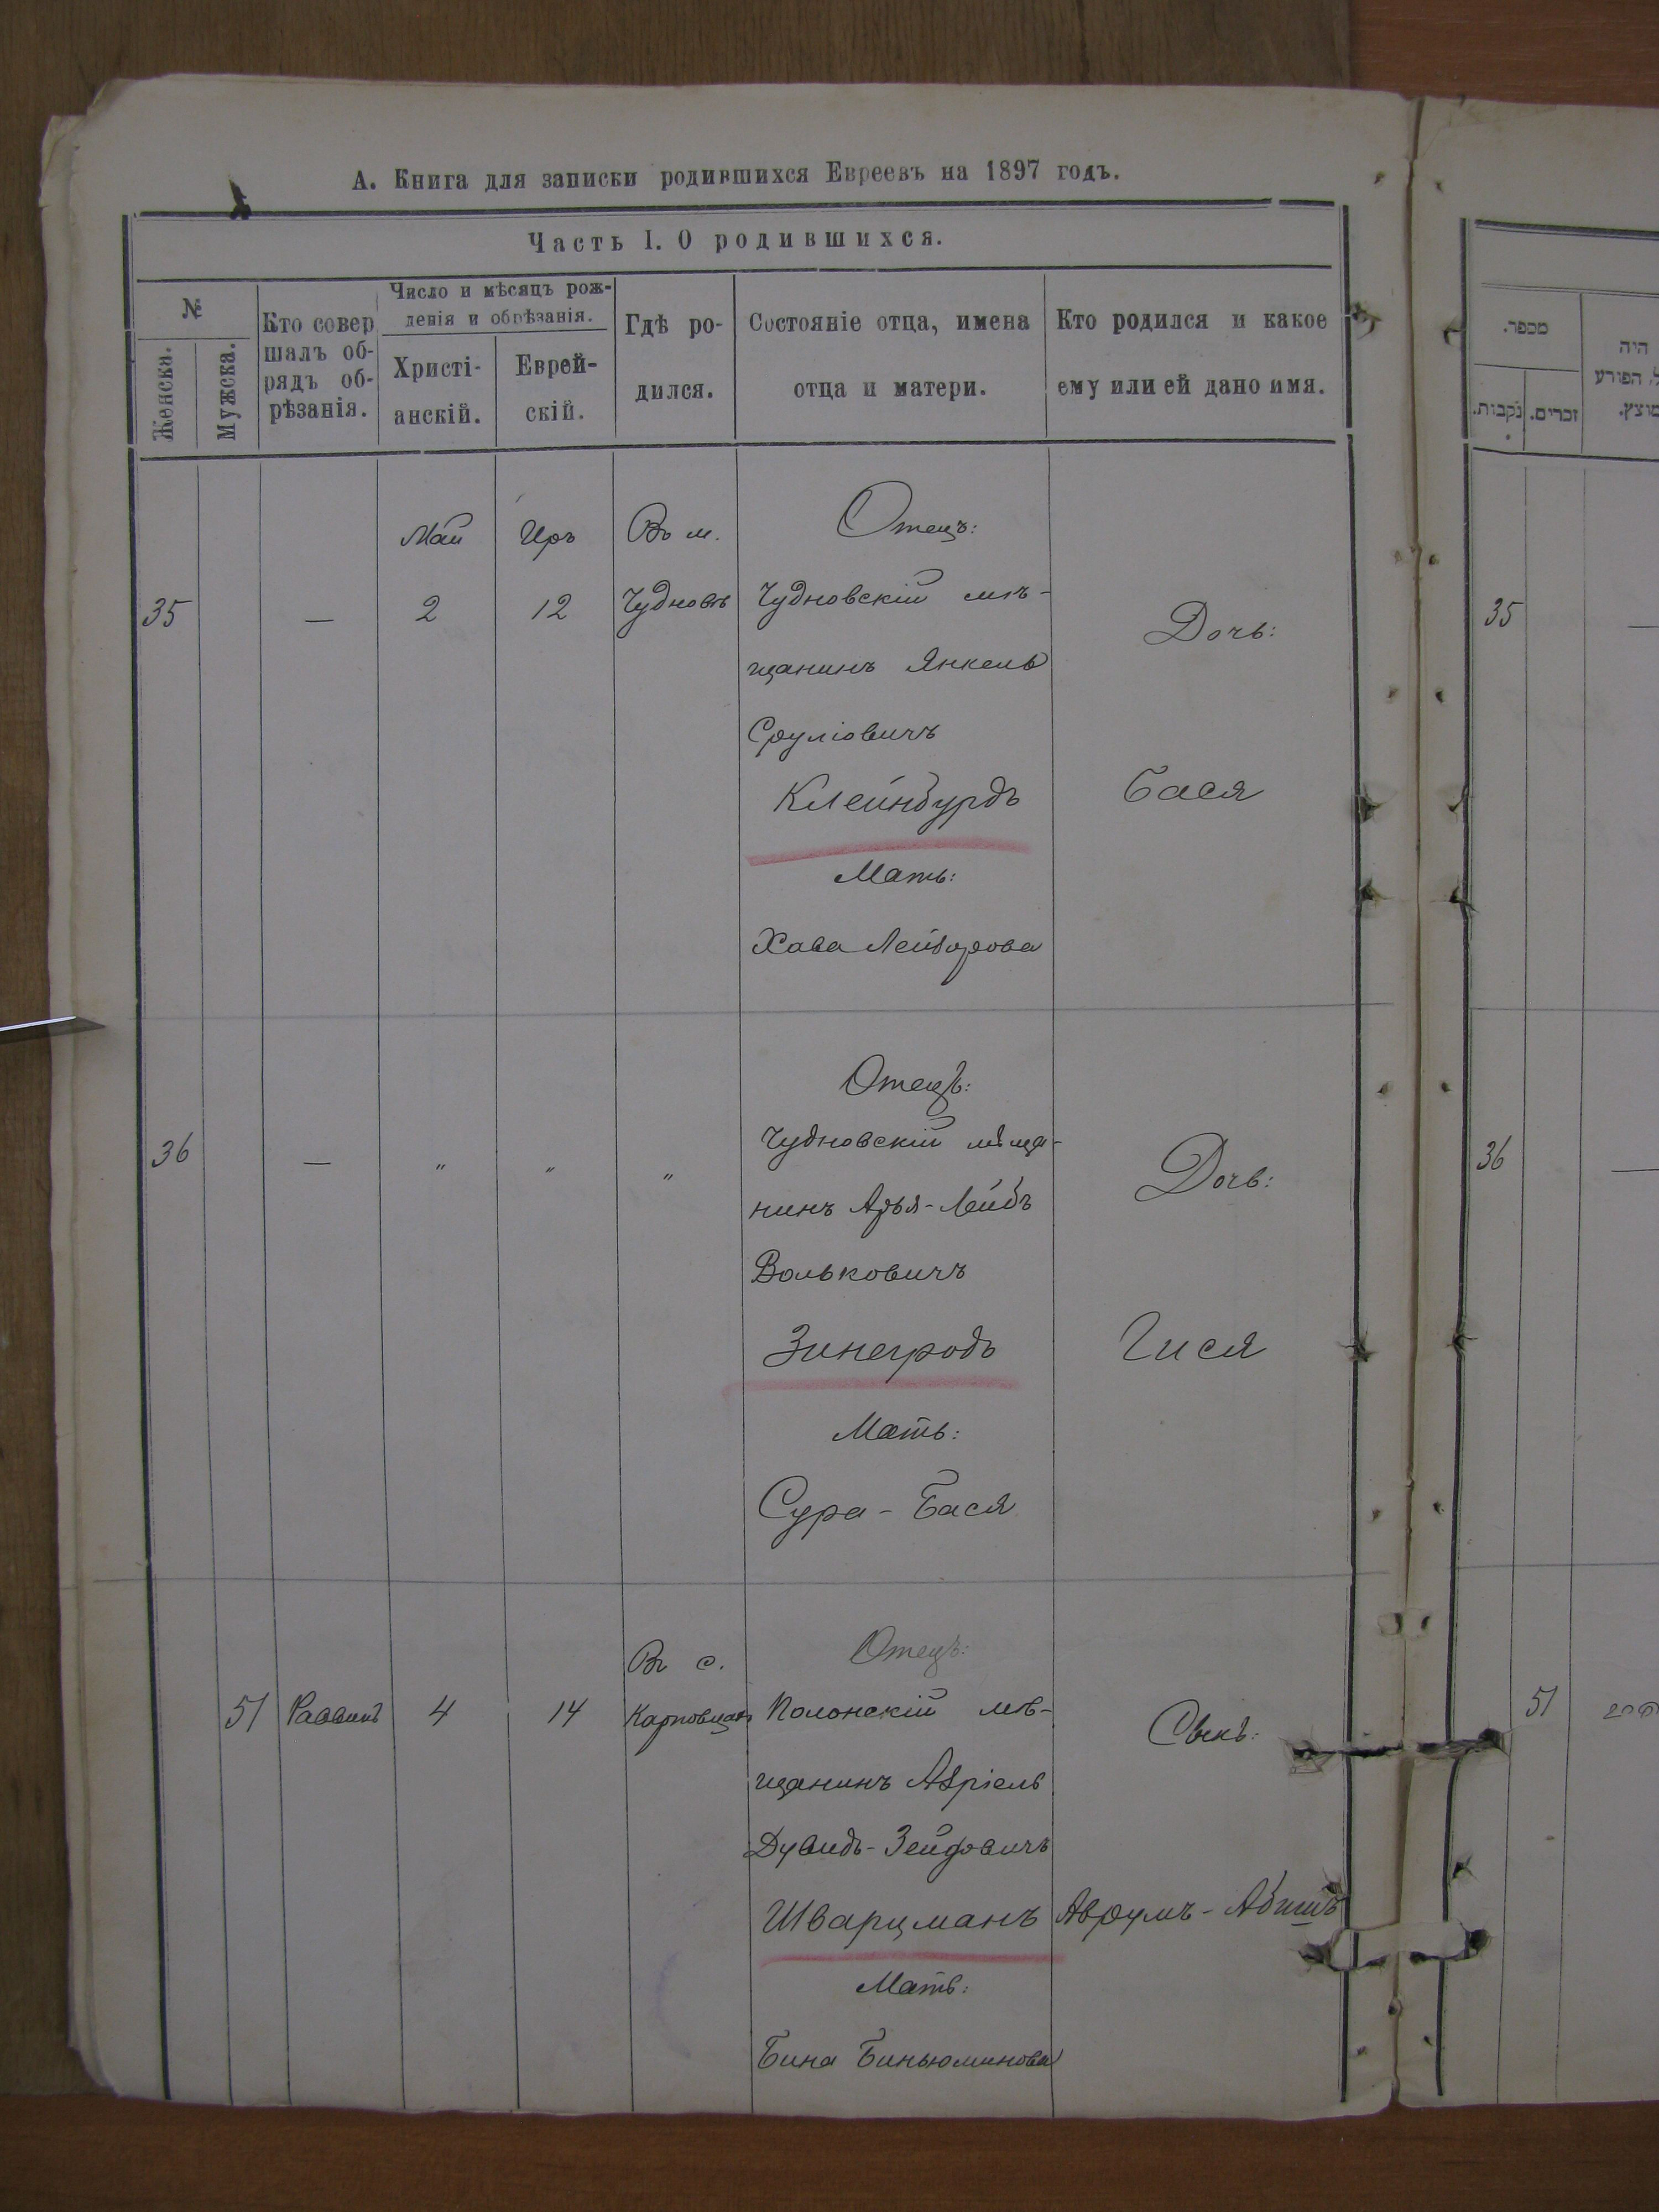 А. Книга для записки родившихся Евреевъ на 1897 годъ.
Часть I. О родившихся.
№
Женска.
Мужска.
Кто совер
шалъ об-
рядъ об-
рѣзанія.
Число и мѣсяцъ рож-
денія и обрѣзанія.
Христі-
анскій.
Еврей-
скій.
Гдѣ ро-
дился.
Состояніе отца, имена
отца и матери.
Кто родился и какое
ему или ей дано имя.
מספר.
נקבות.
זכרים.
היה
הפורע
מוצץ.
Май
Иръ
Въ м.
Отецъ:
35
—
2
12
Чудновѣ
Чудновскій мѣ-
щанинъ Янкель
Сруліовичъ
Клейнбурдъ
Мать:
Хава Лейзорова
Дочь:
Бася
35
—
36
—
"
"
"
Отецъ:
Чудновскій мѣща-
нинъ Арья-Лейбъ
Вольковичъ
Зинегродъ
Мать:
Сура-Бася
Дочь:
Гися
36
—
51
Раввинъ
4
14
Въ с.
Карповцахъ
Отецъ:
Полонскій мѣ-
щанинъ Азріель
Дувидъ-Зейдовичъ
Шварцманъ
Мать:
Бина Биньюминова
Сынъ:
Аврумъ-Абишъ
51